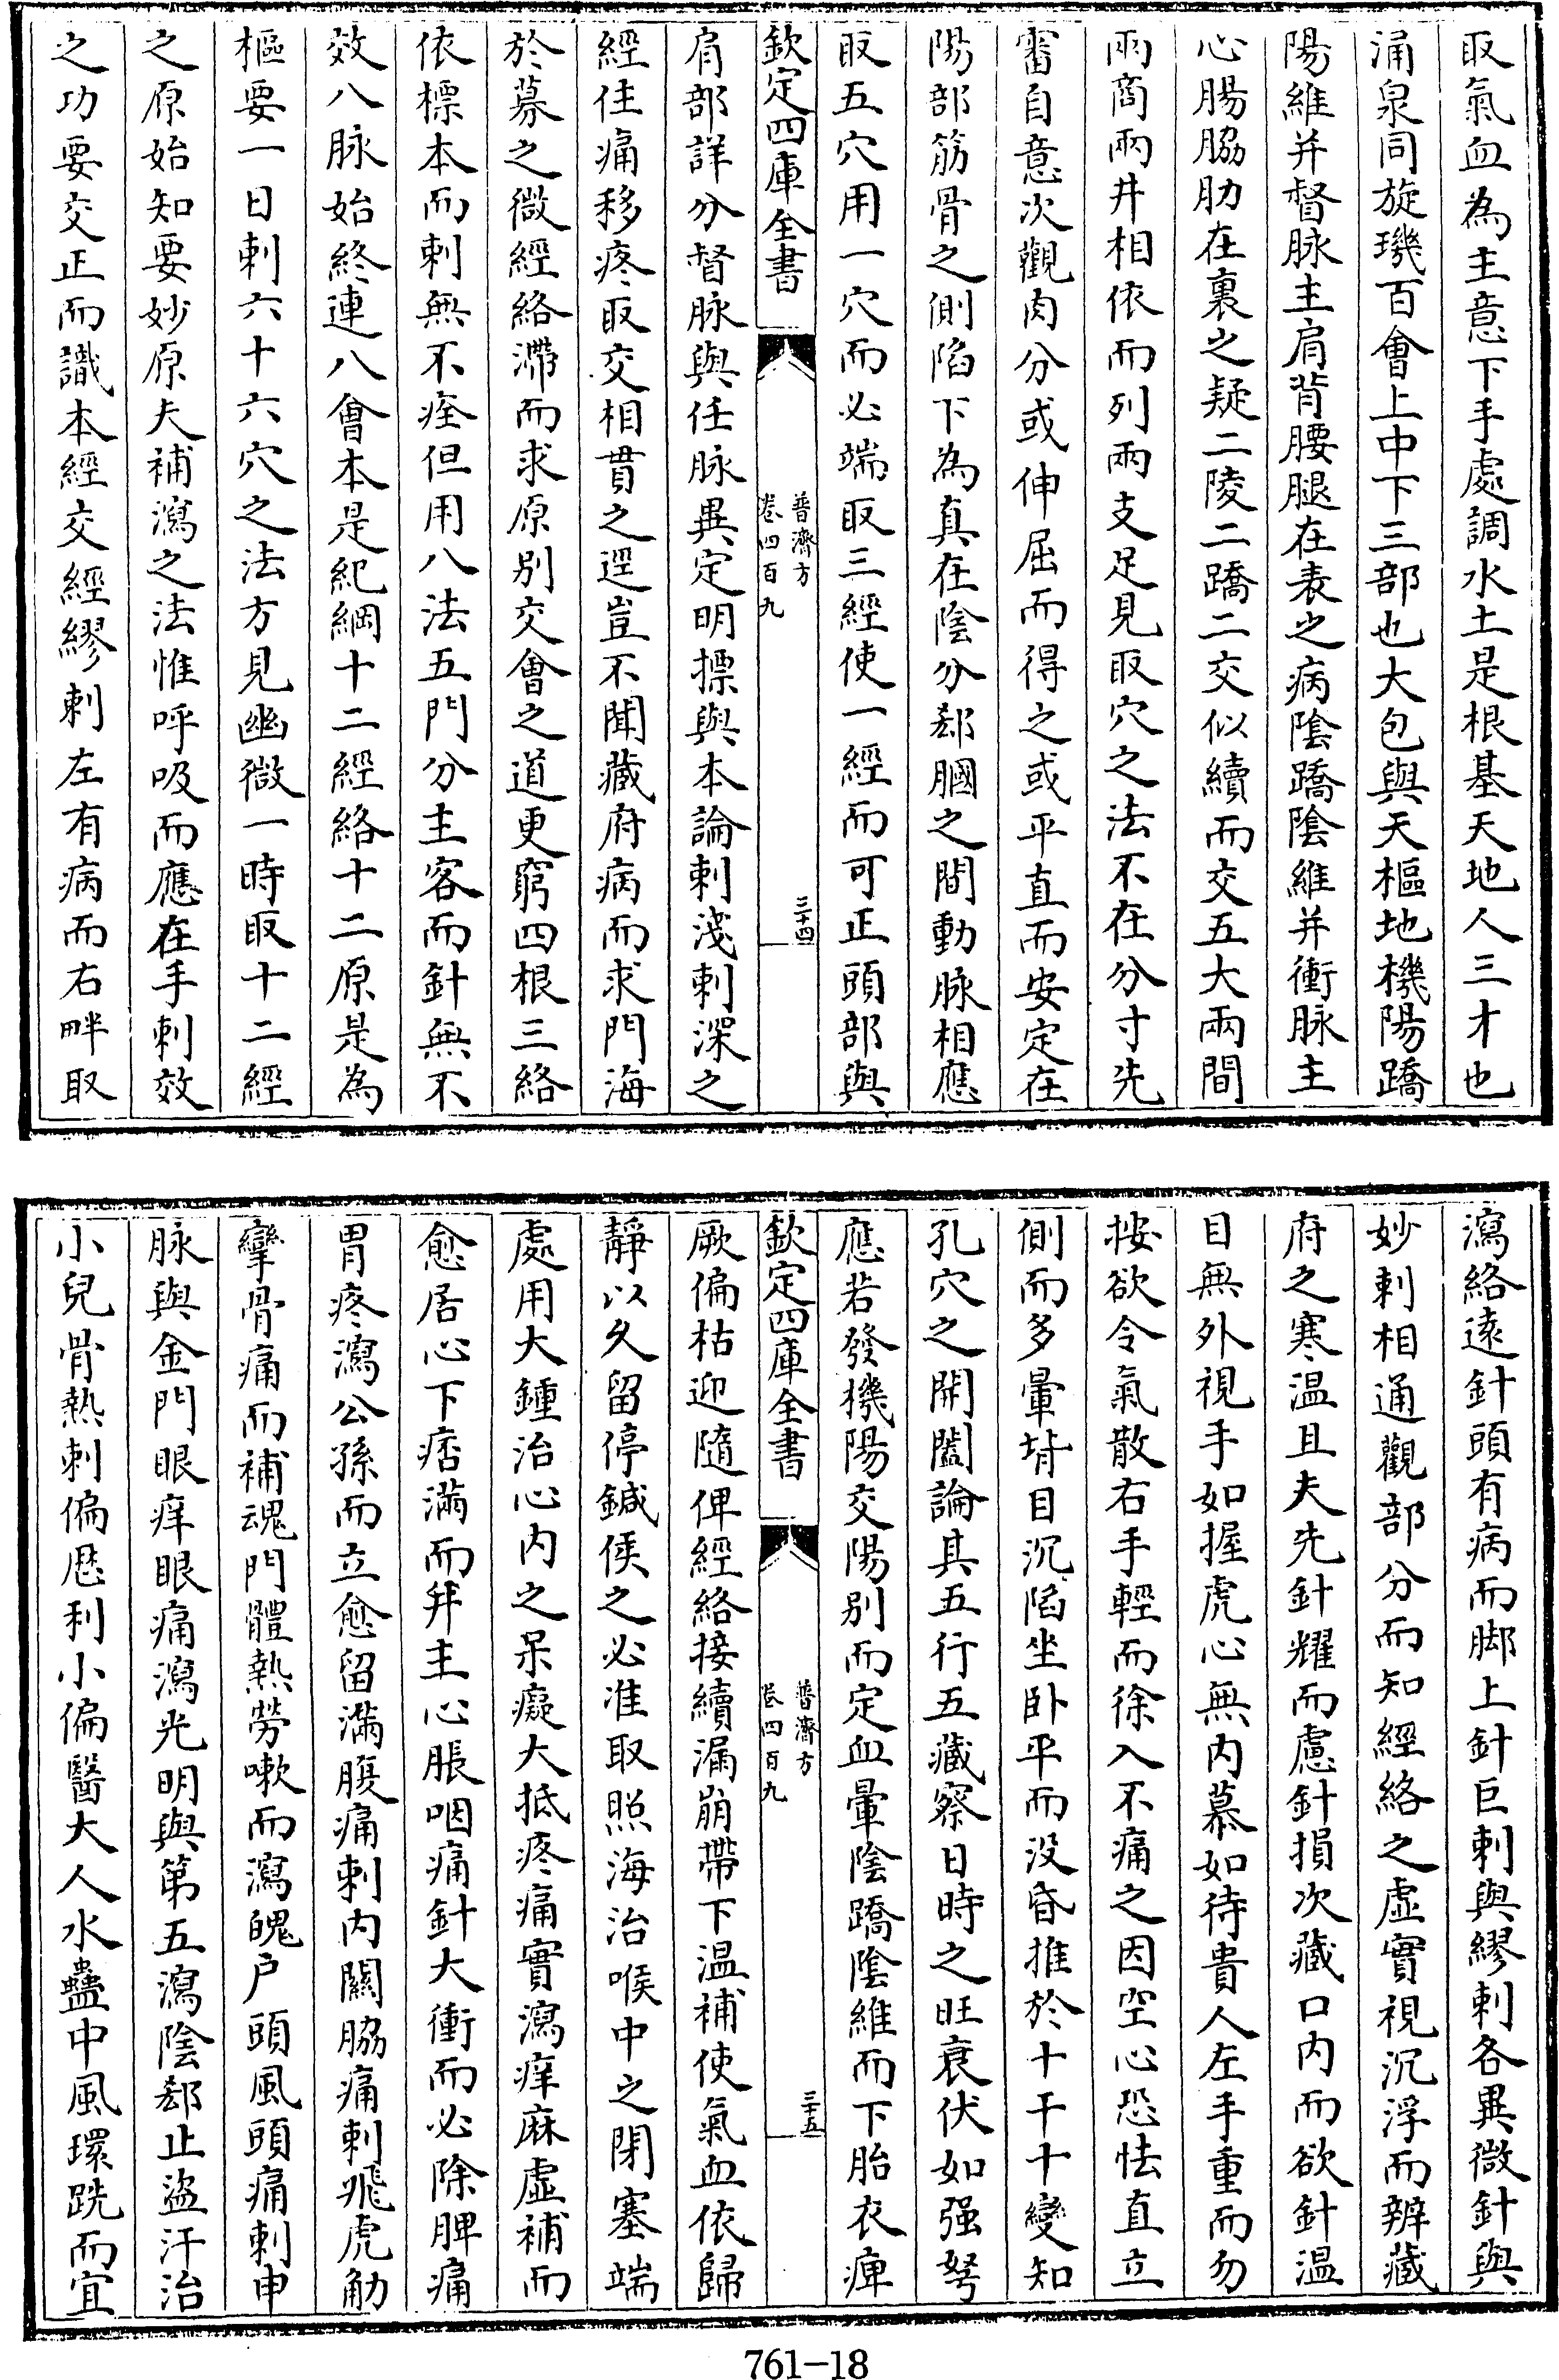 取氣血為主意下手處調水土是根基天地人三才也
涌泉同旋璣百會上中下三部也大包與天樞地機陽蹻
陽維并督脉主肩背腰腿在表之病陰蹻陰維并衝脉主
心腸脇肋在裏之疑二陵二蹻二交似續而交五大兩間
兩商兩井相依而列兩支足見取穴之法不在分寸先
審自意次觀肉分或伸屈而得之或平直而安定在
陽部筋骨之側陷下為真在陰分郄膕之間動脉相應
取五穴用一穴而必端取三經使一經而可正頭部與
欽定四庫全書
普濟方
卷四百九
三十四
肩部詳分督脉與任脉異定明摽與本論刺淺刺深之
經住痛移疼取交相貫之逕豈不聞藏府病而求門海
於募之微經絡滯而求原别交會之道更窮四根三絡
依標本而刺無不痊但用八法五門分主客而針無不
效八脉始終連八會本是紀綱十二經絡十二原是為
樞要一日刺六十六穴之法方見幽微一時取十二經
之原始知要妙原夫補瀉之法惟呼吸而應在手刺效
之功要交正而識本經交經繆刺左有病而右畔取
瀉絡遠針頭有病而脚上針巨刺與繆刺各異微針與
妙刺相通觀部分而知經絡之虛實視沉浮而辨藏
府之寒温且夫先針耀而慮針損次藏口内而欲針温
目無外視手如握虎心無内慕如待貴人左手重而勿
按欲令氣散右手輕而徐入不痛之因空心恐怯直立
側而多暈背目沉陷坐卧平而没昏推於十干十變知
孔穴之開闔論其五行五藏察日時之旺衰伏如强弩
應若發機陽交陽别而定血暈陰蹻陰維而下胎衣痺
欽定四庫全書
普濟方
卷四百九
三十五
厥偏枯迎隨俾經絡接續漏崩帶下温補使氣血依歸
靜以久留停鍼候之必准取照海治喉中之閉塞端
處用大鍾治心内之呆癡大抵疼痛實瀉痒麻虛補而
愈居心下痞滿而幷主心脹咽痛針大衝而必除脾痛
胃疼瀉公孫而立愈留滿腹痛刺内關脇痛刺飛虎觔
攣骨痛而補魂門體熱勞嗽而瀉魄户頭風頭痛刺申
脉與金門眼痒眼痛瀉光明與第五瀉陰郄止盜汗治
小兒骨熱刺偏歴利小偏醫大人水蠱中風環跳而宜
761-18